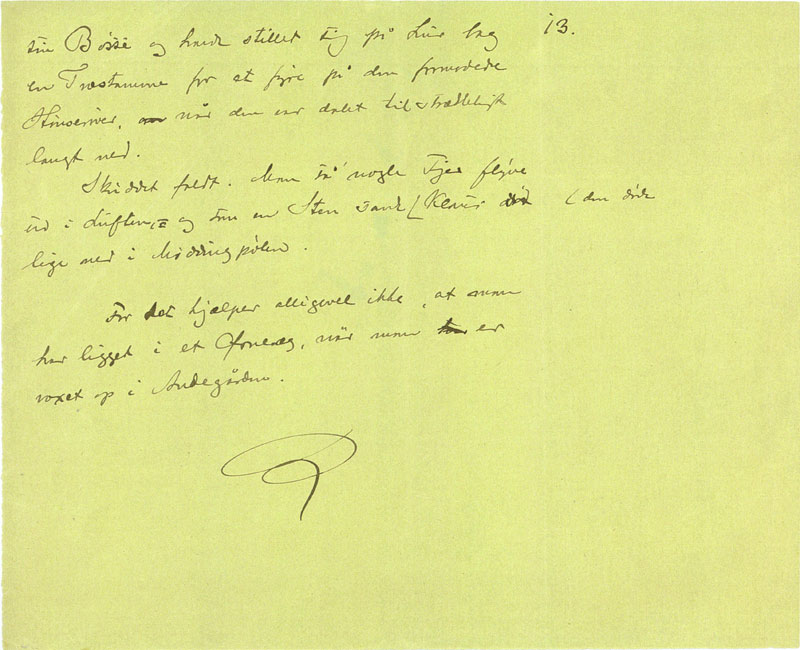 13.
sin Bøsse og havde stillet sig på Lur bag
en Træstamme for at fyre på den formodede
Hønserøver, når den var dalet tilstrækkeligt
langt ned.
Skuddet faldt. Man så nogle Fjer flyve
ud i Luften, og som en Sten sank [Klaus (den døde
lige ned i Møddingpølen.
For det hjælper alligevel ikke, at man
har ligget i et Ørneæg, når man er
voxet op i Andegården.